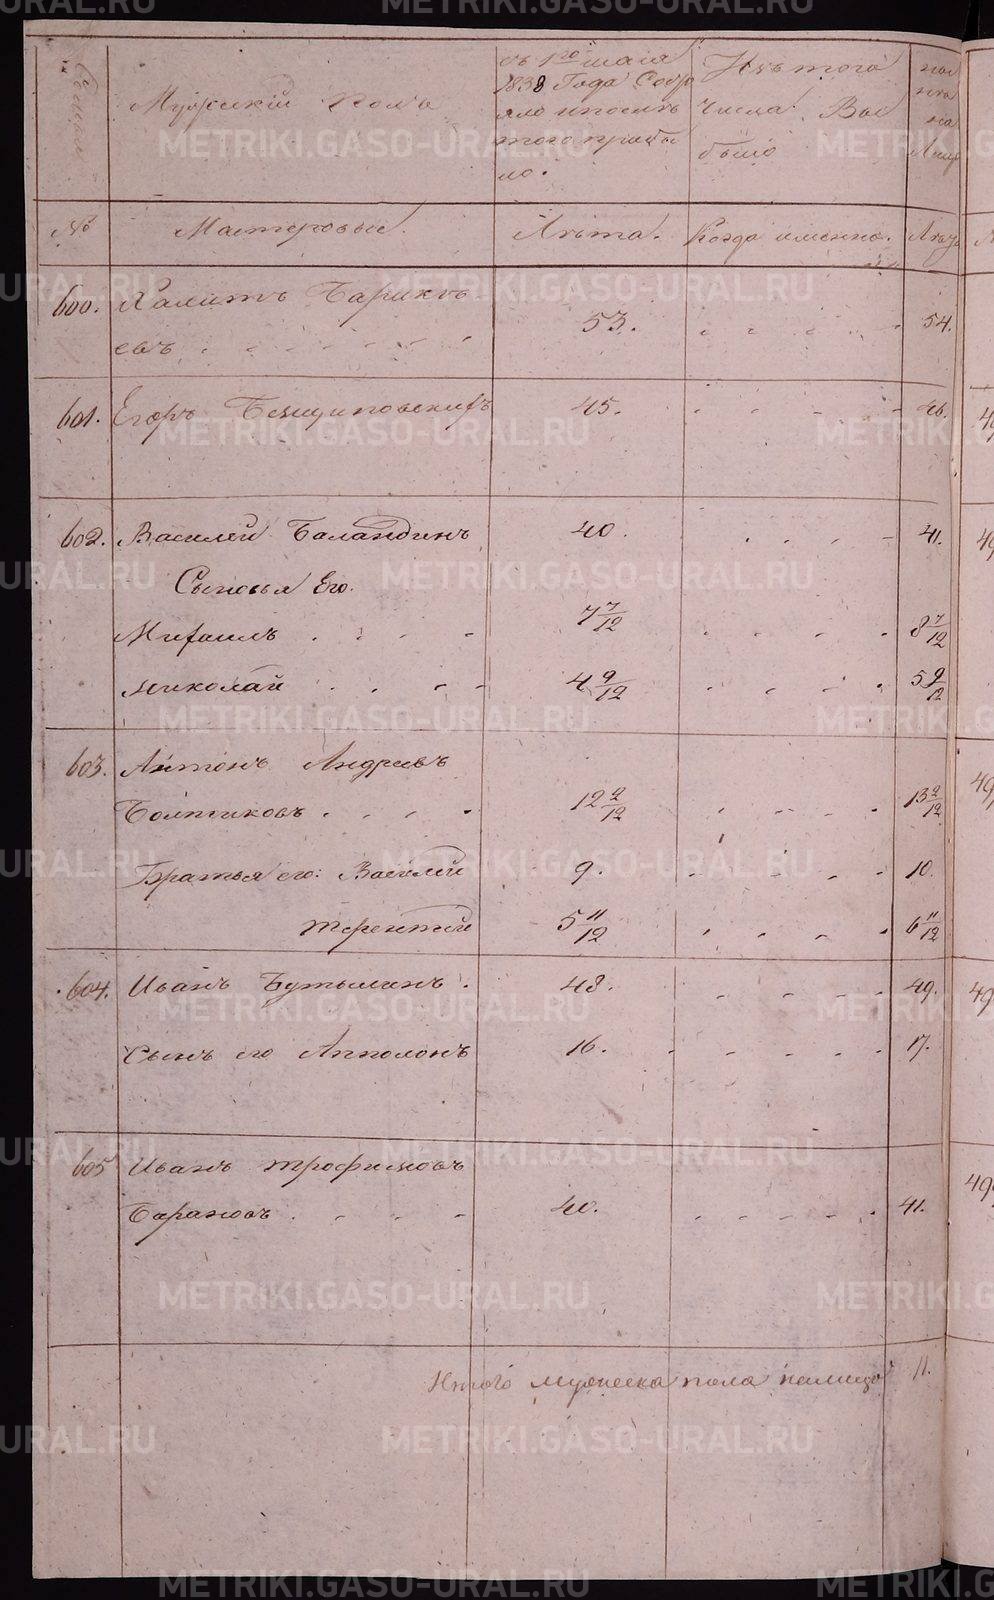 METRIKI.GASO-URAL.RU
Мужский Полъ
съ 1го маiя
1838 Года
Изъ того
Числа Вы
было
на
№
Мастеровые.
Лѣта.
Когда именно.
Лѣта
600. Халитъ
евъ . . . . . . . 53. . . . . . 54.
601. Егоръ 45. . . . . 46.
602. Василей Баландинъ 40. . . . . 41.
Сыновья Его.
Михаилъ . . . . 7 7/12 . . . . 8 7/12
Николай . . . . 4 9/12 . . . . 5 9/12
603. Антонъ Андреевъ
Болтиковъ . . . . 12 2/12 . . . . 13 2/12
Братья его: Василей 9. . . . . 10.
Терентей 5 11/12 . . . . 6 11/12
604. Иванъ Бутылинъ . 48. . . . . 49.
Сынъ его Апполонъ 16. . . . . . 17.
605 Иванъ Трофимовъ
Барановъ . . . . 40. . . . . . 41.
Итого мужеска пола налицо 11.